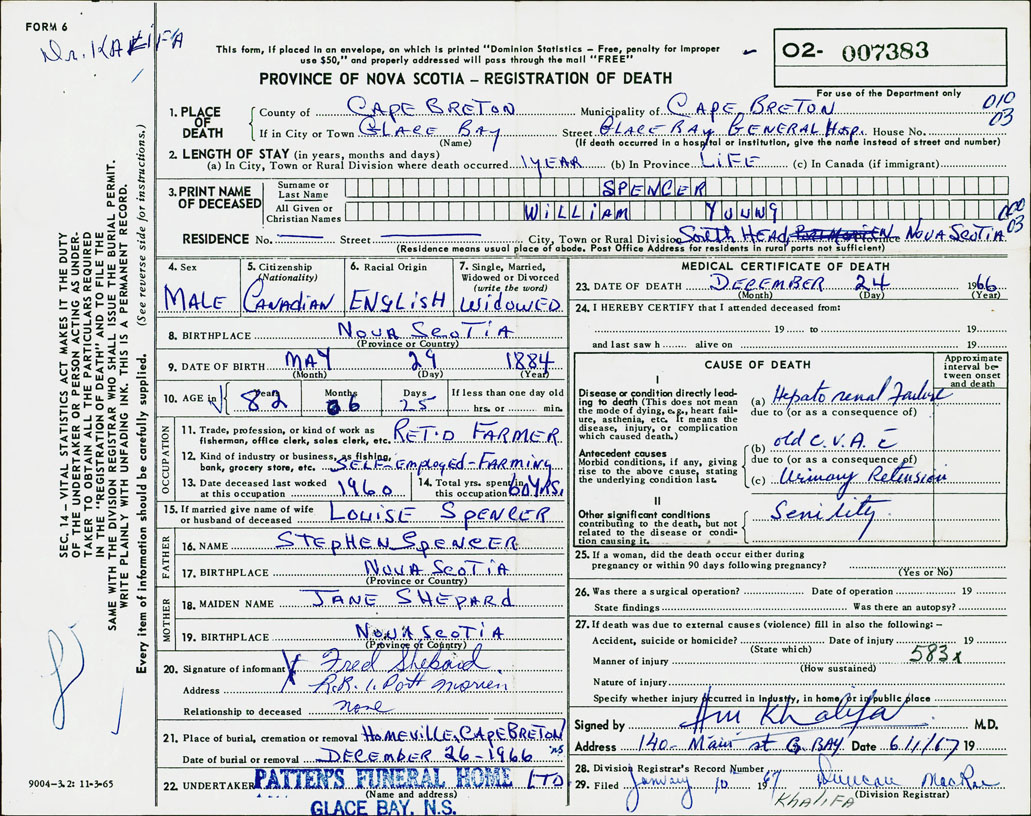 FORM 6
Dr. KALIFA
This form, if placed in an envelope, on which is printed "Dominion Statistics – Free, penalty for improper
use $50," and properly addressed will pass through the mail "FREE"
PROVINCE OF NOVA SCOTIA – REGISTRATION OF DEATH
O2- 007383
For use of the Department only
010
03
1. PLACE OF DEATH
County of CAPE BRETON Municipality of CAPE BRETON
If in City or Town GLACE BAY Street GLACE BAY GENERAL Hosp. House No.
(Name) (If death occurred in a hospital or institution, give the name instead of street and number)
2. LENGTH OF STAY (in years, months and days)
(a) In City, Town or Rural Division where death occurred 1 YEAR (b) In Province LIFE (c) In Canada (if immigrant)
3. PRINT NAME OF DECEASED
Surname or Last Name SPENCER
All Given or Christian Names WILLIAM YOUNG
000
03
RESIDENCE No. Street City, Town or Rural Division South HEAD, Province NOVA SCOTIA
(Residence means usual place of abode. Post Office Address for residents in rural ports not sufficient)
4. Sex
MALE
5. Citizenship
(Nationality)
CANADIAN
6. Racial Origin
ENGLISH
7. Single, Married,
Widowed or Divorced
(write the word)
WIDOWED
8. BIRTHPLACE NOVA SCOTIA
(Province or Country)
9. DATE OF BIRTH MAY 29 1884
(Month) (Day) (Year)
10. AGE in Years Months Days If less than one day old
82 06 25 hrs. or min.
OCCUPATION
11. Trade, profession, or kind of work as
fisherman, office clerk, sales clerk, etc. RET'D FARMER
12. Kind of industry or business, as fishing,
bank, grocery store, etc. SELF-EMPLOYED-FARMING
13. Date deceased last worked
at this occupation 1960
14. Total yrs. spent in
this occupation 60 YRS.
15. If married give name of wife
or husband of deceased LOUISE SPENCER
FATHER
16. NAME STEPHEN SPENCER
17. BIRTHPLACE NOVA SCOTIA
(Province or Country)
MOTHER
18. MAIDEN NAME JANE SHEPARD
19. BIRTHPLACE NOVA SCOTIA
(Province or Country)
20. Signature of informant X Fred Shepard
Address R.R. 1. Port Morien
Relationship to deceased none
21. Place of burial, cremation or removal HOMEVILLE, CAPE BRETON
NS
Date of burial or removal DECEMBER 26-1966
22. UNDERTAKER PATTEN'S FUNERAL HOME LTD
(Name and address)
GLACE BAY, N.S.
MEDICAL CERTIFICATE OF DEATH
23. DATE OF DEATH DECEMBER 24 1966
(Month) (Day) (Year)
24. I HEREBY CERTIFY that I attended deceased from:
19 to 19
and last saw h alive on 19
CAUSE OF DEATH
Approximate
interval be-
tween onset
and death
I
Disease or condition directly lead-
ing to death (This does not mean
the mode of dying, e.g., heart fail-
ate, asthenia, etc. It means the
disease, injury, or complication
which caused death.)
(a) Hepato renal Failure
due to (or as a consequence of)
(b) old C.V.A. c̄
Antecedent causes
Morbid conditions, if any, giving
rise to the above cause, stating
the underlying condition last.
due to (or as a consequence of)
(c) Urinary Retension
II
Other significant conditions
contributing to the death, but not
related to the disease or condi-
tion causing it.
Senility.
25. If a woman, did the death occur either during
pregnancy or within 90 days following pregnancy?
(Yes or No)
26. Was there a surgical operation? Date of operation 19
State findings Was there an autopsy?
27. If death was due to external causes (violence) fill in also the following: –
Accident, suicide or homicide? Date of injury 19
(State which)
583x
Manner of injury
(How sustained)
Nature of injury
Specify whether injury occurred in Industry, in home, or in public place
Signed by Khalifa M.D.
Address 140- Main st G. BAY Date 6/1/67 19
28. Division Registrar's Record Number
29. Filed January 10 1967 Duncan MacRae
KHALIFA (Division Registrar)
SEC. 14 – VITAL STATISTICS ACT MAKES IT THE DUTY
OF THE UNDERTAKER OR PERSON ACTING AS UNDER-
TAKER TO OBTAIN ALL THE PARTICULARS REQUIRED
IN THE "REGISTRATION OF DEATH" AND TO FILE THE
SAME WITH THE DIVISION REGISTRAR WHO SHALL ISSUE THE BURIAL PERMIT.
WRITE PLAINLY WITH UNFADING INK. THIS IS A PERMANENT RECORD.
Every item of information should be carefully supplied. (See reverse side for instructions.)
9004-3.2: 11-3-65